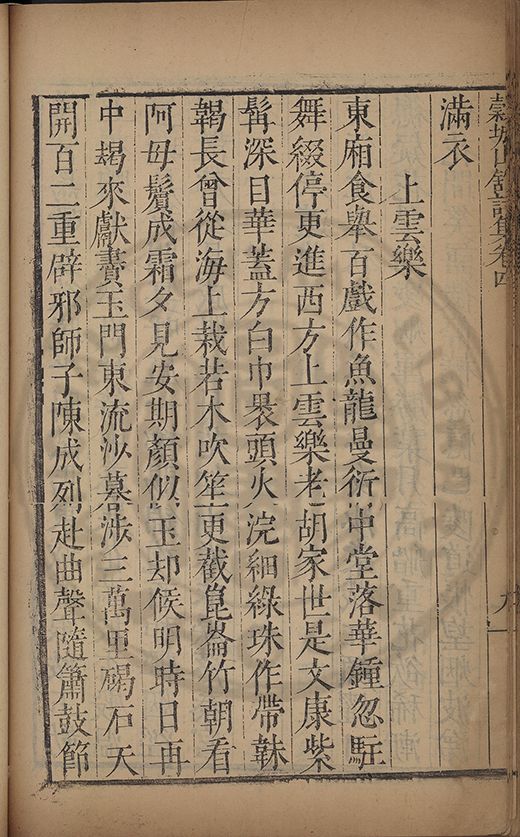 穀城山館詩集卷四
九
滿衣
上雲樂
東廂食舉百戲作魚龍曼衍中堂落華鍾忽駐
舞綴停更進西方上雲樂老胡家世是文康紫
髯深目華蓋方白巾褁頭火浣細綠珠作帶韎
鞨長曾從海上栽若木吹笙更截崑崙竹朝看
阿母鬢成霜夕見安期顏似玉却候明時日再
中朅來獻賮玉門東流沙暮涉三萬里碣石天
開百二重辟邪師子陳成列赴曲聲隨簫鼓節